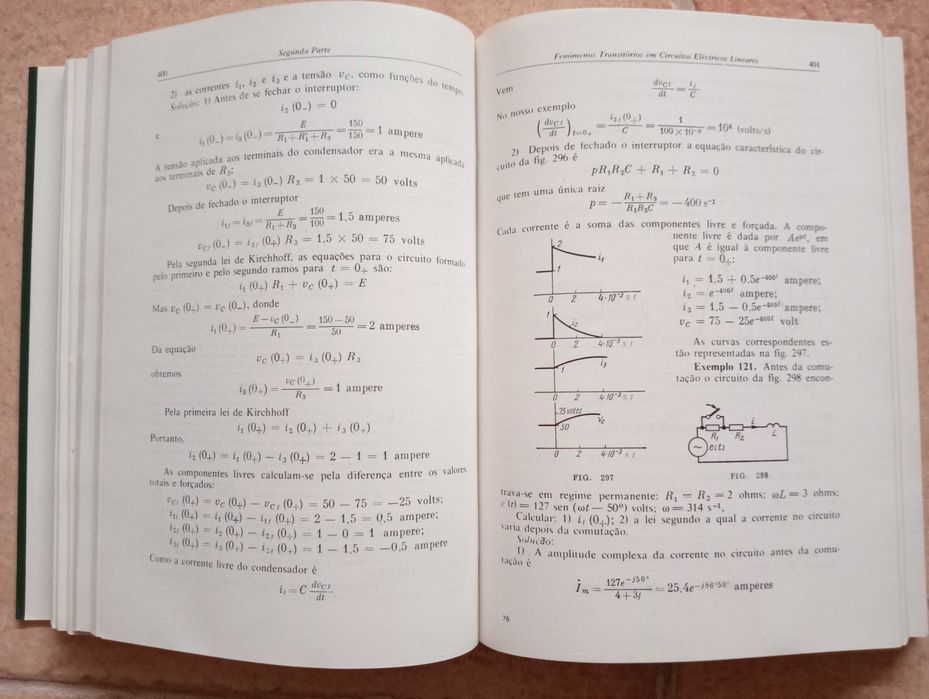 400
Segunda Parte
2) as correntes i₁, i₂ e i₃ e a tensão v_C, como funções do tempo.
Solução: 1) Antes de se fechar o interruptor:
i₂ (0₋) = 0
e
i₁ (0₋) = i₃ (0₋) = E / (R₁ + R₁ + R₃) = 150 / 150 = 1 ampere
A tensão aplicada aos terminais do condensador era a mesma aplicada
aos terminais de R₃:
v_C (0₋) = i₃ (0₋) R₃ = 1 × 50 = 50 volts
Depois de fechado o interruptor
i₁f = i₃f = E / (R₁ + R₃) = 150 / 100 = 1,5 amperes
v_Cf (0₊) = i₃f (0₊) R₃ = 1.5 × 50 = 75 volts
Pela segunda lei de Kirchhoff, as equações para o circuito formado
pelo primeiro e pelo segundo ramos para t = 0₊ são:
i₁ (0₊) R₁ + v_C (0₊) = E
Mas v_C (0₊) = v_C (0₋), donde
i₁ (0₊) = (E − v_C (0₋)) / R₁ = (150 − 50) / 50 = 2 amperes
Da equação
v_C (0₊) = i₃ (0₊) R₃
obtemos
i₃ (0₊) = v_C (0₊) / R₃ = 1 ampere
Pela primeira lei de Kirchhoff
i₁ (0₊) = i₂ (0₊) + i₃ (0₊)
Portanto,
i₂ (0₊) = i₁ (0₊) − i₃ (0₊) = 2 − 1 = 1 ampere
As componentes livres calculam-se pela diferença entre os valores
totais e forçados:
v_Cl (0₊) = v_C (0₊) − v_Cf (0₊) = 50 − 75 = −25 volts;
i₁l (0₊) = i₁ (0₊) − i₁f (0₊) = 2 − 1,5 = 0,5 ampere;
i₂l (0₊) = i₂ (0₊) − i₂f (0₊) = 1 − 0 = 1 ampere;
i₃l (0₊) = i₃ (0₊) − i₃f (0₊) = 1 − 1,5 = −0.5 ampere
Como a corrente livre do condensador é
i_l = C dv_Cl / dt
Fenómenos Transitórios em Circuitos Eléctricos Lineares
401
Vem
dv_Cl / dt = i_l / C
No nosso exemplo
(dv_Cl / dt)t=0+ = i₂l (0₊) / C = 1 / (100 × 10⁻⁶) = 10⁴ (volts/s)
2) Depois de fechado o interruptor a equação característica do cir-
cuito da fig. 296 é
pR₁R₃C + R₁ + R₃ = 0
que tem uma única raiz
p = − (R₁ + R₃) / (R₁R₃C) = − 400 s⁻¹
Cada corrente é a soma das componentes livre e forçada. A compo-
nente livre é dada por Ae^pt, em
que A é igual à componente livre
para t = 0₊:
i₁ = 1,5 + 0,5e^−400t ampere;
i₂ = e^−400t ampere;
i₃ = 1,5 − 0.5e^−400t ampere;
v_C = 75 − 25e^−400t volt
As curvas correspondentes es-
tão representadas na fig. 297.
Exemplo 121. Antes da comu-
tação o circuito da fig. 298 encon-
2
i₁
1
0 2 4·10⁻³ s t
i₂
0 2 4·10⁻³ s t
1
i₃
0 2 4·10⁻³ s t
75 volts
v_C
50
0 2 4·10⁻³ s t
FIG. 297
R₁ R₂ i L
e(t)
FIG. 298
trava-se em regime permanente: R₁ = R₂ = 2 ohms; ωL = 3 ohms;
e (t) = 127 sen (ωt − 50°) volts; ω = 314 s⁻¹.
Calcular: 1) i_l (0₊); 2) a lei segundo a qual a corrente no circuito
varia depois da comutação.
Solução:
1) A amplitude complexa da corrente no circuito antes da comu-
tação é
İₘ = 127e^−j50° / (4 + 3j) = 25,4e^−j86°50′ amperes
26